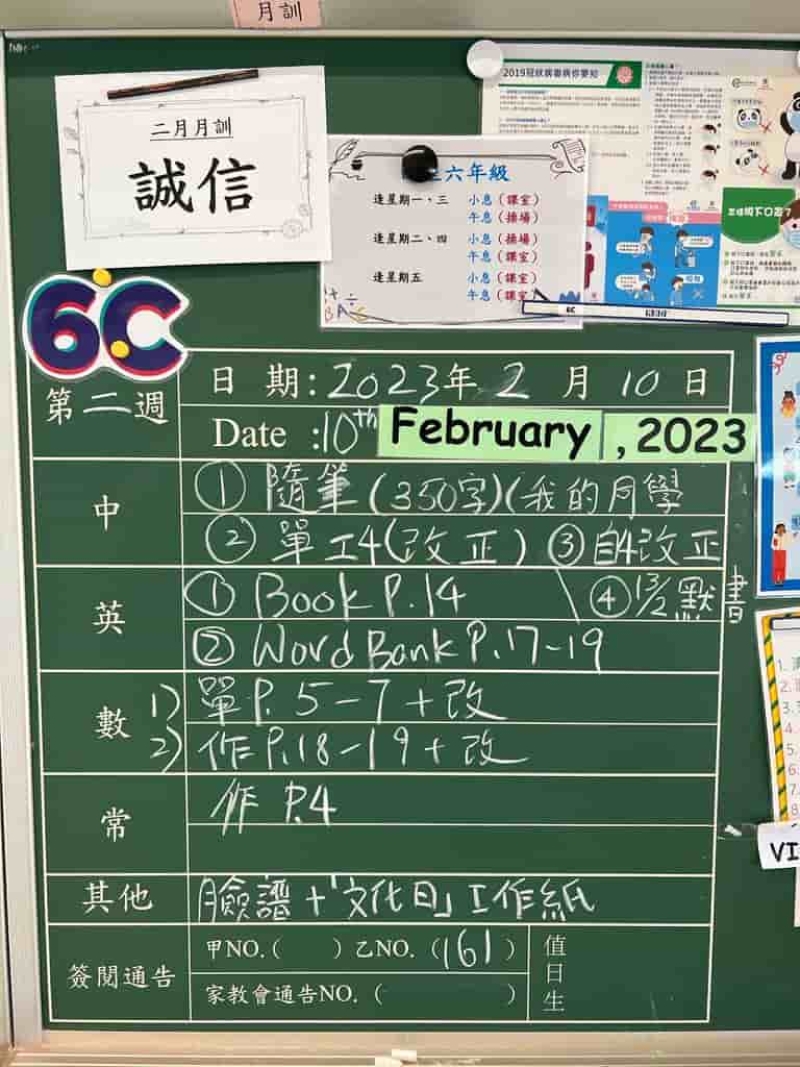 月訓
二月月訓
誠信
六年級
逢星期一、三 小息（課室）
午息（操場）
逢星期二、四 小息（操場）
午息（課室）
逢星期五 小息（課室）
午息（課室）
2019冠狀病毒病你要知
6C
第二週
日 期：2023年 2 月 10 日
Date :10th February , 2023
中
① 隨筆(350字)(我的同學
② 單工4(改正) ③自4改正
④13/2默書
英
① Book P.14
② Word Bank P.17-19
數
1) 單P. 5-7+改
2) 作P.18-19+改
常
作 P.4
其他
臉譜+「文化日」工作紙
簽閱通告
甲NO.( ) 乙NO. (161)
家教會通告NO. ( )
值日生
1.
2.
3.
4.
5.
6.
7.
8.
VI